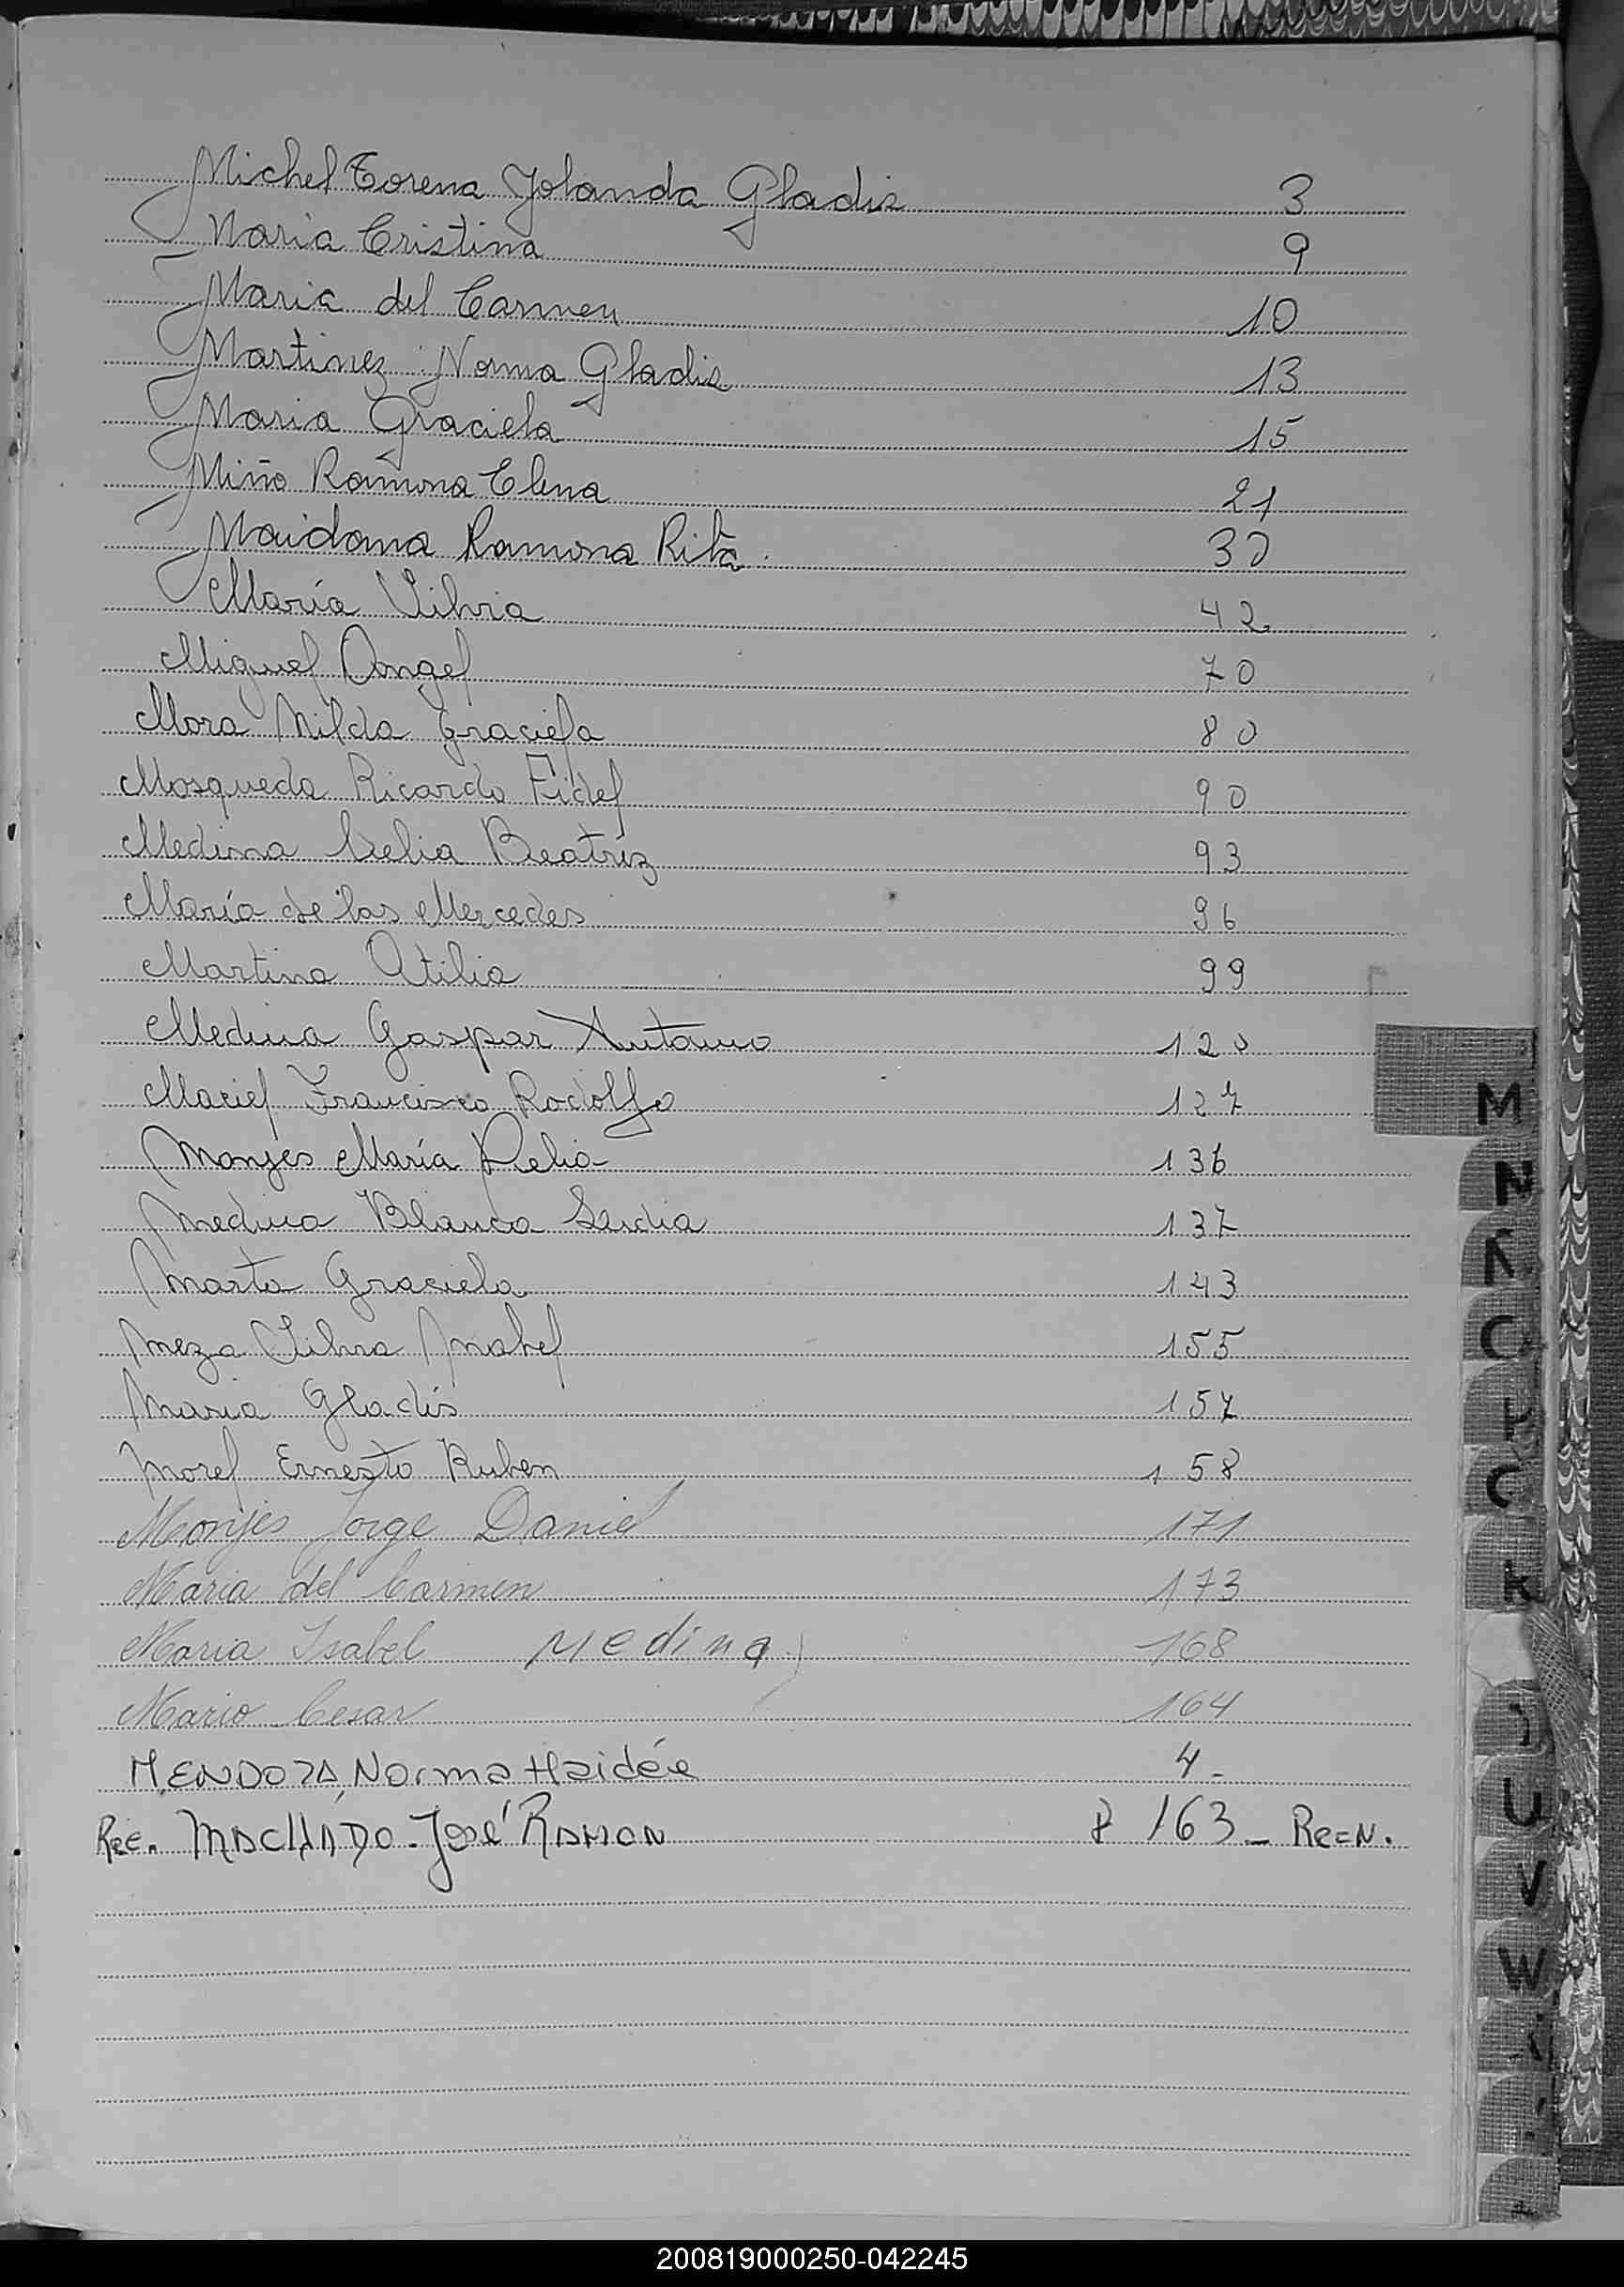 Michel Torena Yolanda Gladis 3
Maria Cristina 9
Maria del Carmen 10
Martinez Norma Gladis 13
Maria Graciela 15
Miño Ramona Elena 21
Maidana Ramona Rita 30
María Silvia 42
Miguel Angel 70
Mora Nilda Graciela 80
Mosqueda Ricardo Fidel 90
Medina Celia Beatriz 93
María de las Mercedes 96
Martina Otilia 99
Medina Gaspar Antonio 120
Maciel Francisco Rodolfo 127
Monjes María Delia 136
Medina Blanca Lidia 137
Marta Graciela 143
Meza Silvia Mabel 155
Maria Gladis 157
Morel Ernesto Ruben 158
Monjes Jorge Daniel 171
Maria del Carmen 173
Maria Isabel Medina) 168
Mario Cesar 164
MENDOZA, Norma Haidée 4-
Rec. MACHADO - José RAMON 163 - Rec=N.
M
N
K
J
U
V
W
200819000250-042245